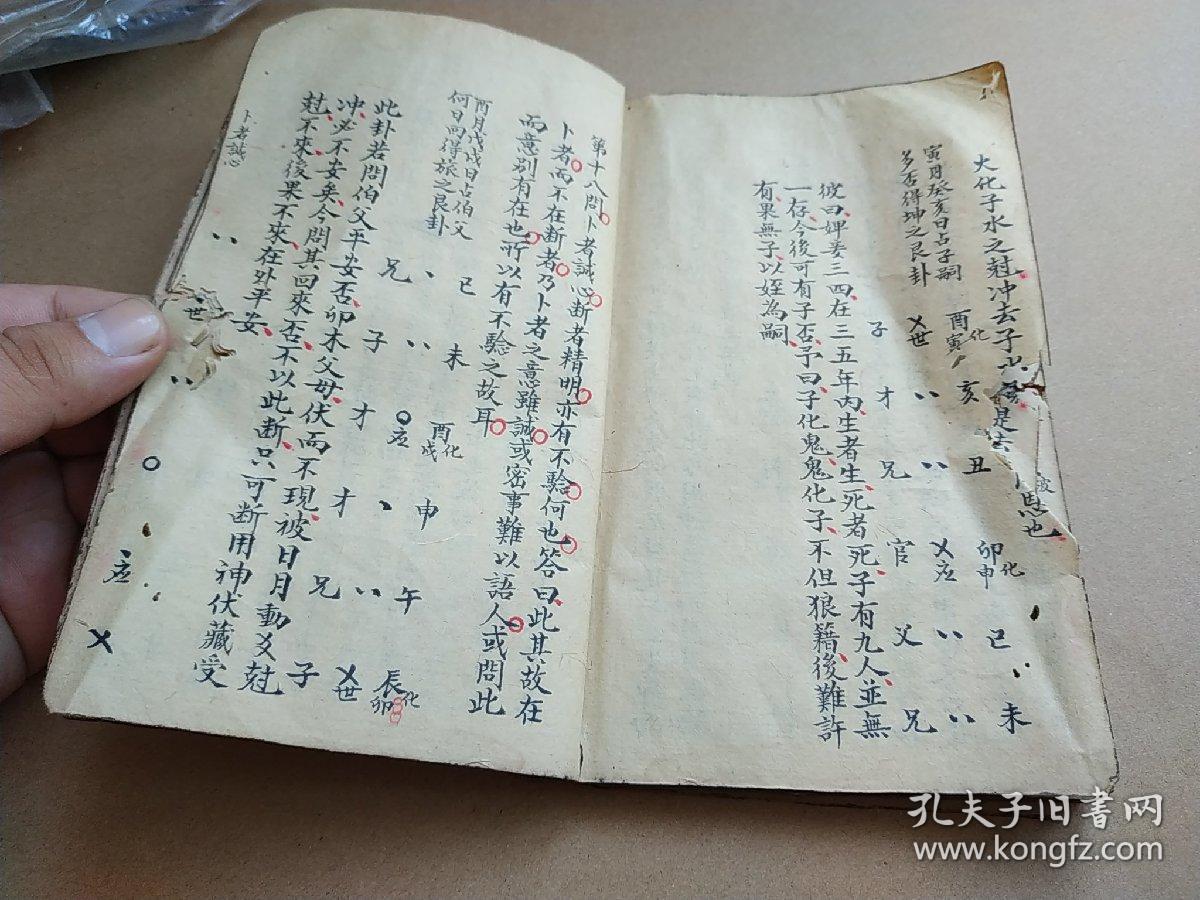 大化子水之尅冲去子
是
恩也
寅月癸亥日占子嗣
多否得坤之艮卦
子 世 酉化寅
才 亥
兄 丑
官 应 卯化申
父 巳
兄 未
彼曰婢妾三四在三五年内生者生死者死子有九人並無
一存今後可有子否予曰子化鬼鬼化子不但狼籍後難許
有果無子以姪為嗣
第十八問卜者誠心断者精明亦有不驗何也答曰此其故在
卜者而不在断者乃卜者之意雖誠或密事難以語人或問此
而意别有在也所以有不驗之故耳
酉月戊戌日占伯父
何日回得旅之艮卦
兄 巳
子 未
才 应 酉化戌
才 申
兄 午
子 世 辰化卯
此卦若問伯父平安否卯木父母伏而不現被日月動爻尅
冲必不安矣今問其回來否不以此断只可断用神伏藏受
尅不來後果不來在外平安
卜者誠心
世
应
孔夫子旧书网
www.kongfz.com